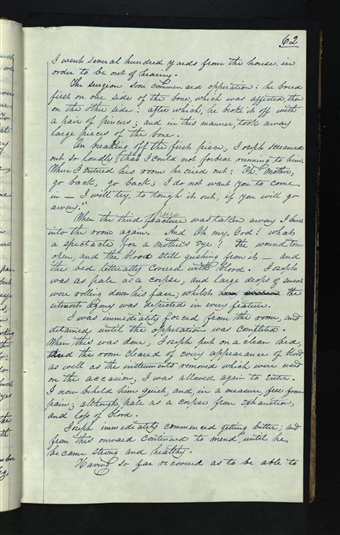 62
I went several hundred yards from the house in
order to be out of hearing.
The surgeon soon commenced opperation: he bored
first on one side of the bone, which was affected, then
on the other side: after which, he broke it off with
a pair of pincers; and in this manner, took away
large pieces of the bone.
On breaking off the first piece, Joseph screamed
out so loudly, that I could not forbear running to him.
When I entered his room he cried out: "Oh, Mother,
go back, go back; I do not want you to come
in — I will try, to tough it out, if you will go
away."
When the third piece was taken away I burst
into the room again. And Oh my God! what
a spectacle for a mother's eye! The wound torn
open, and the blood still gushing from it — and
the bed literally covered with blood. Joseph
was as pale as a corpse, and large drops of sweat
were rolling down his face, whilst the
utmost agony was depicted in every feature.
I was immediately forced from the room, and
detained until the opperation was completed.
When this was done, Joseph put on a clean bed,
the room cleared of every appearance of blood
as well as the instruments removed which were used
on the occasion, I was allowed again to enter.
I now beheld him quiet, and in a measure free from
pain; although, pale as a corpse from exhaustion,
and loss of blood.
Joseph immediately commenced getting better; and
from this onward continued to mend until he
became strong and healthy.
Having so far recovered as to be able to